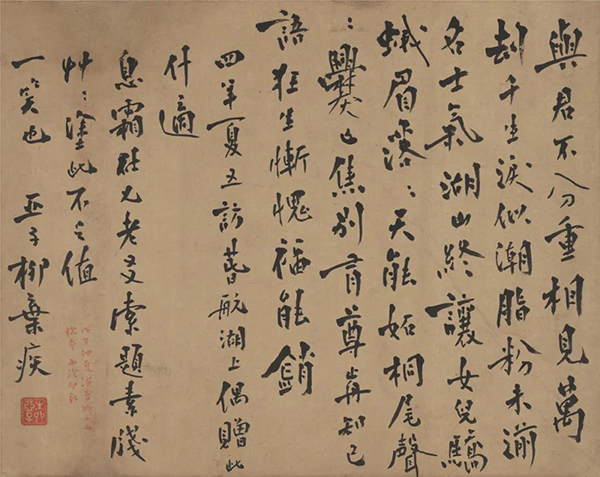 與君不分重相見萬
劫千生淚似潮脂粉未湔
名士氣湖山終讓女兒驕
蛾眉落〻天能妬桐尾聲
〻爨已焦別有尊歬知己
語狂生慚愧福能銷
四年夏五訪萅航湖上偶贈此
什適
息霜社兄老友索題素牋
艸〻塗此不足值
一笑也 亞子柳棄疾